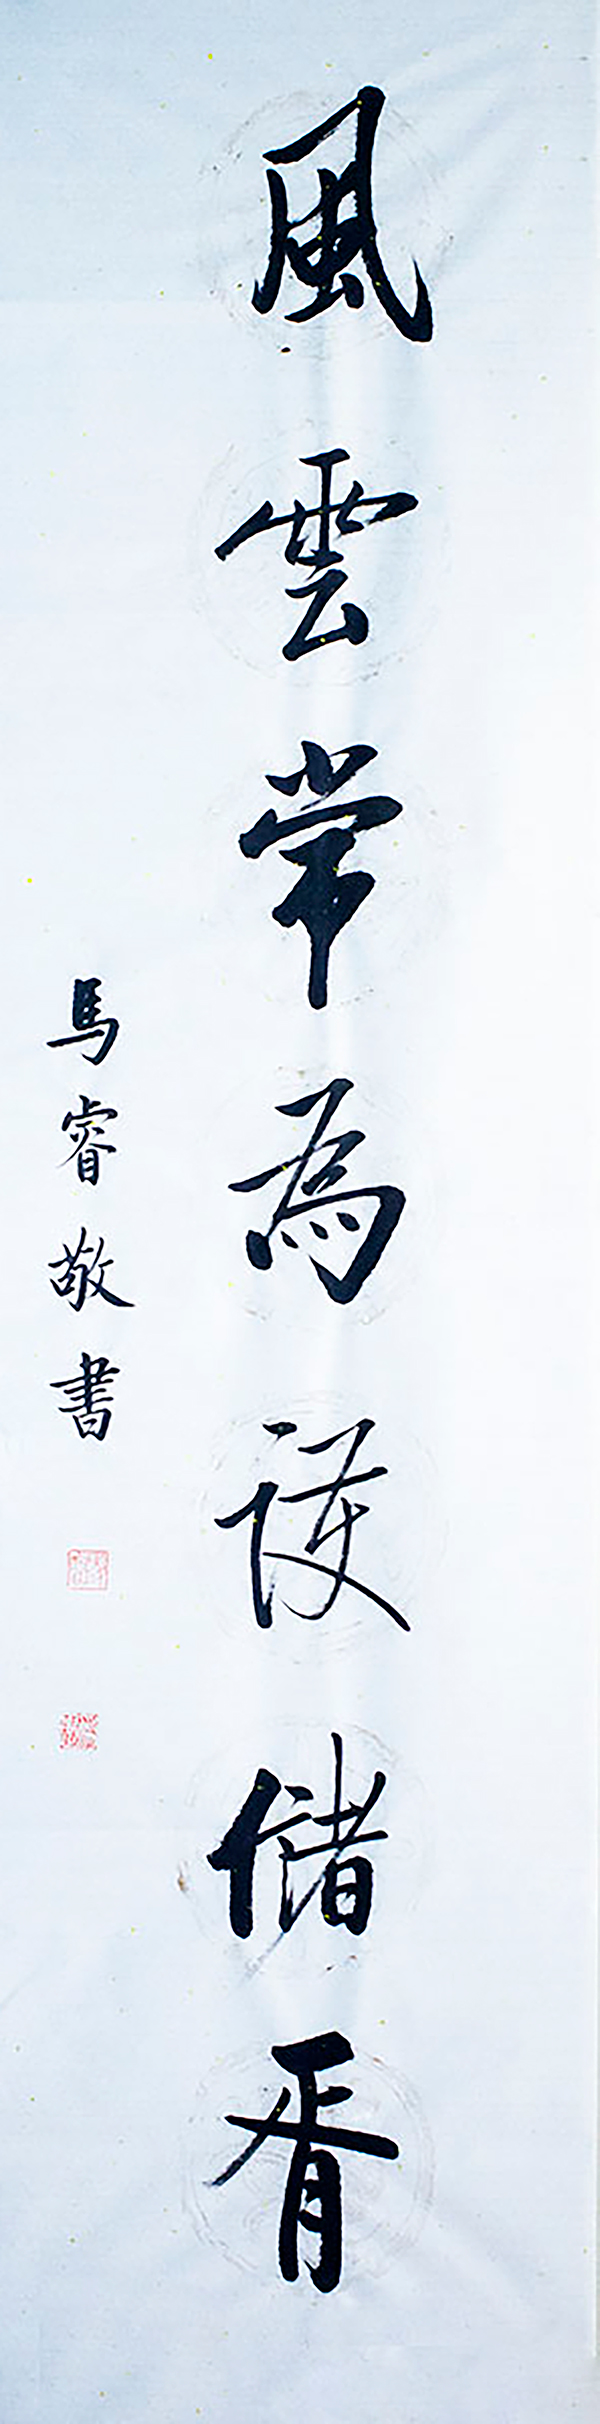 風雲常為護儲胥
馬睿敬書